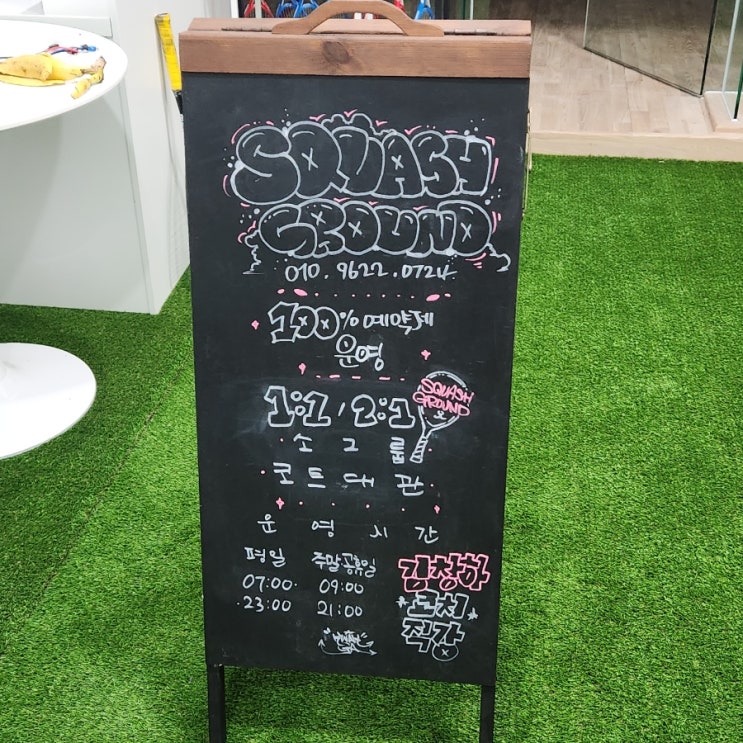 SQUASH
GROUND
010.9622.0724
100% 예약제
운영
1:1, 2:1
SQUASH
GROUND
소그룹
코트대관
운영시간
평일 주말공휴일
07:00 09:00
23:00 21:00
김창하
코치
직강